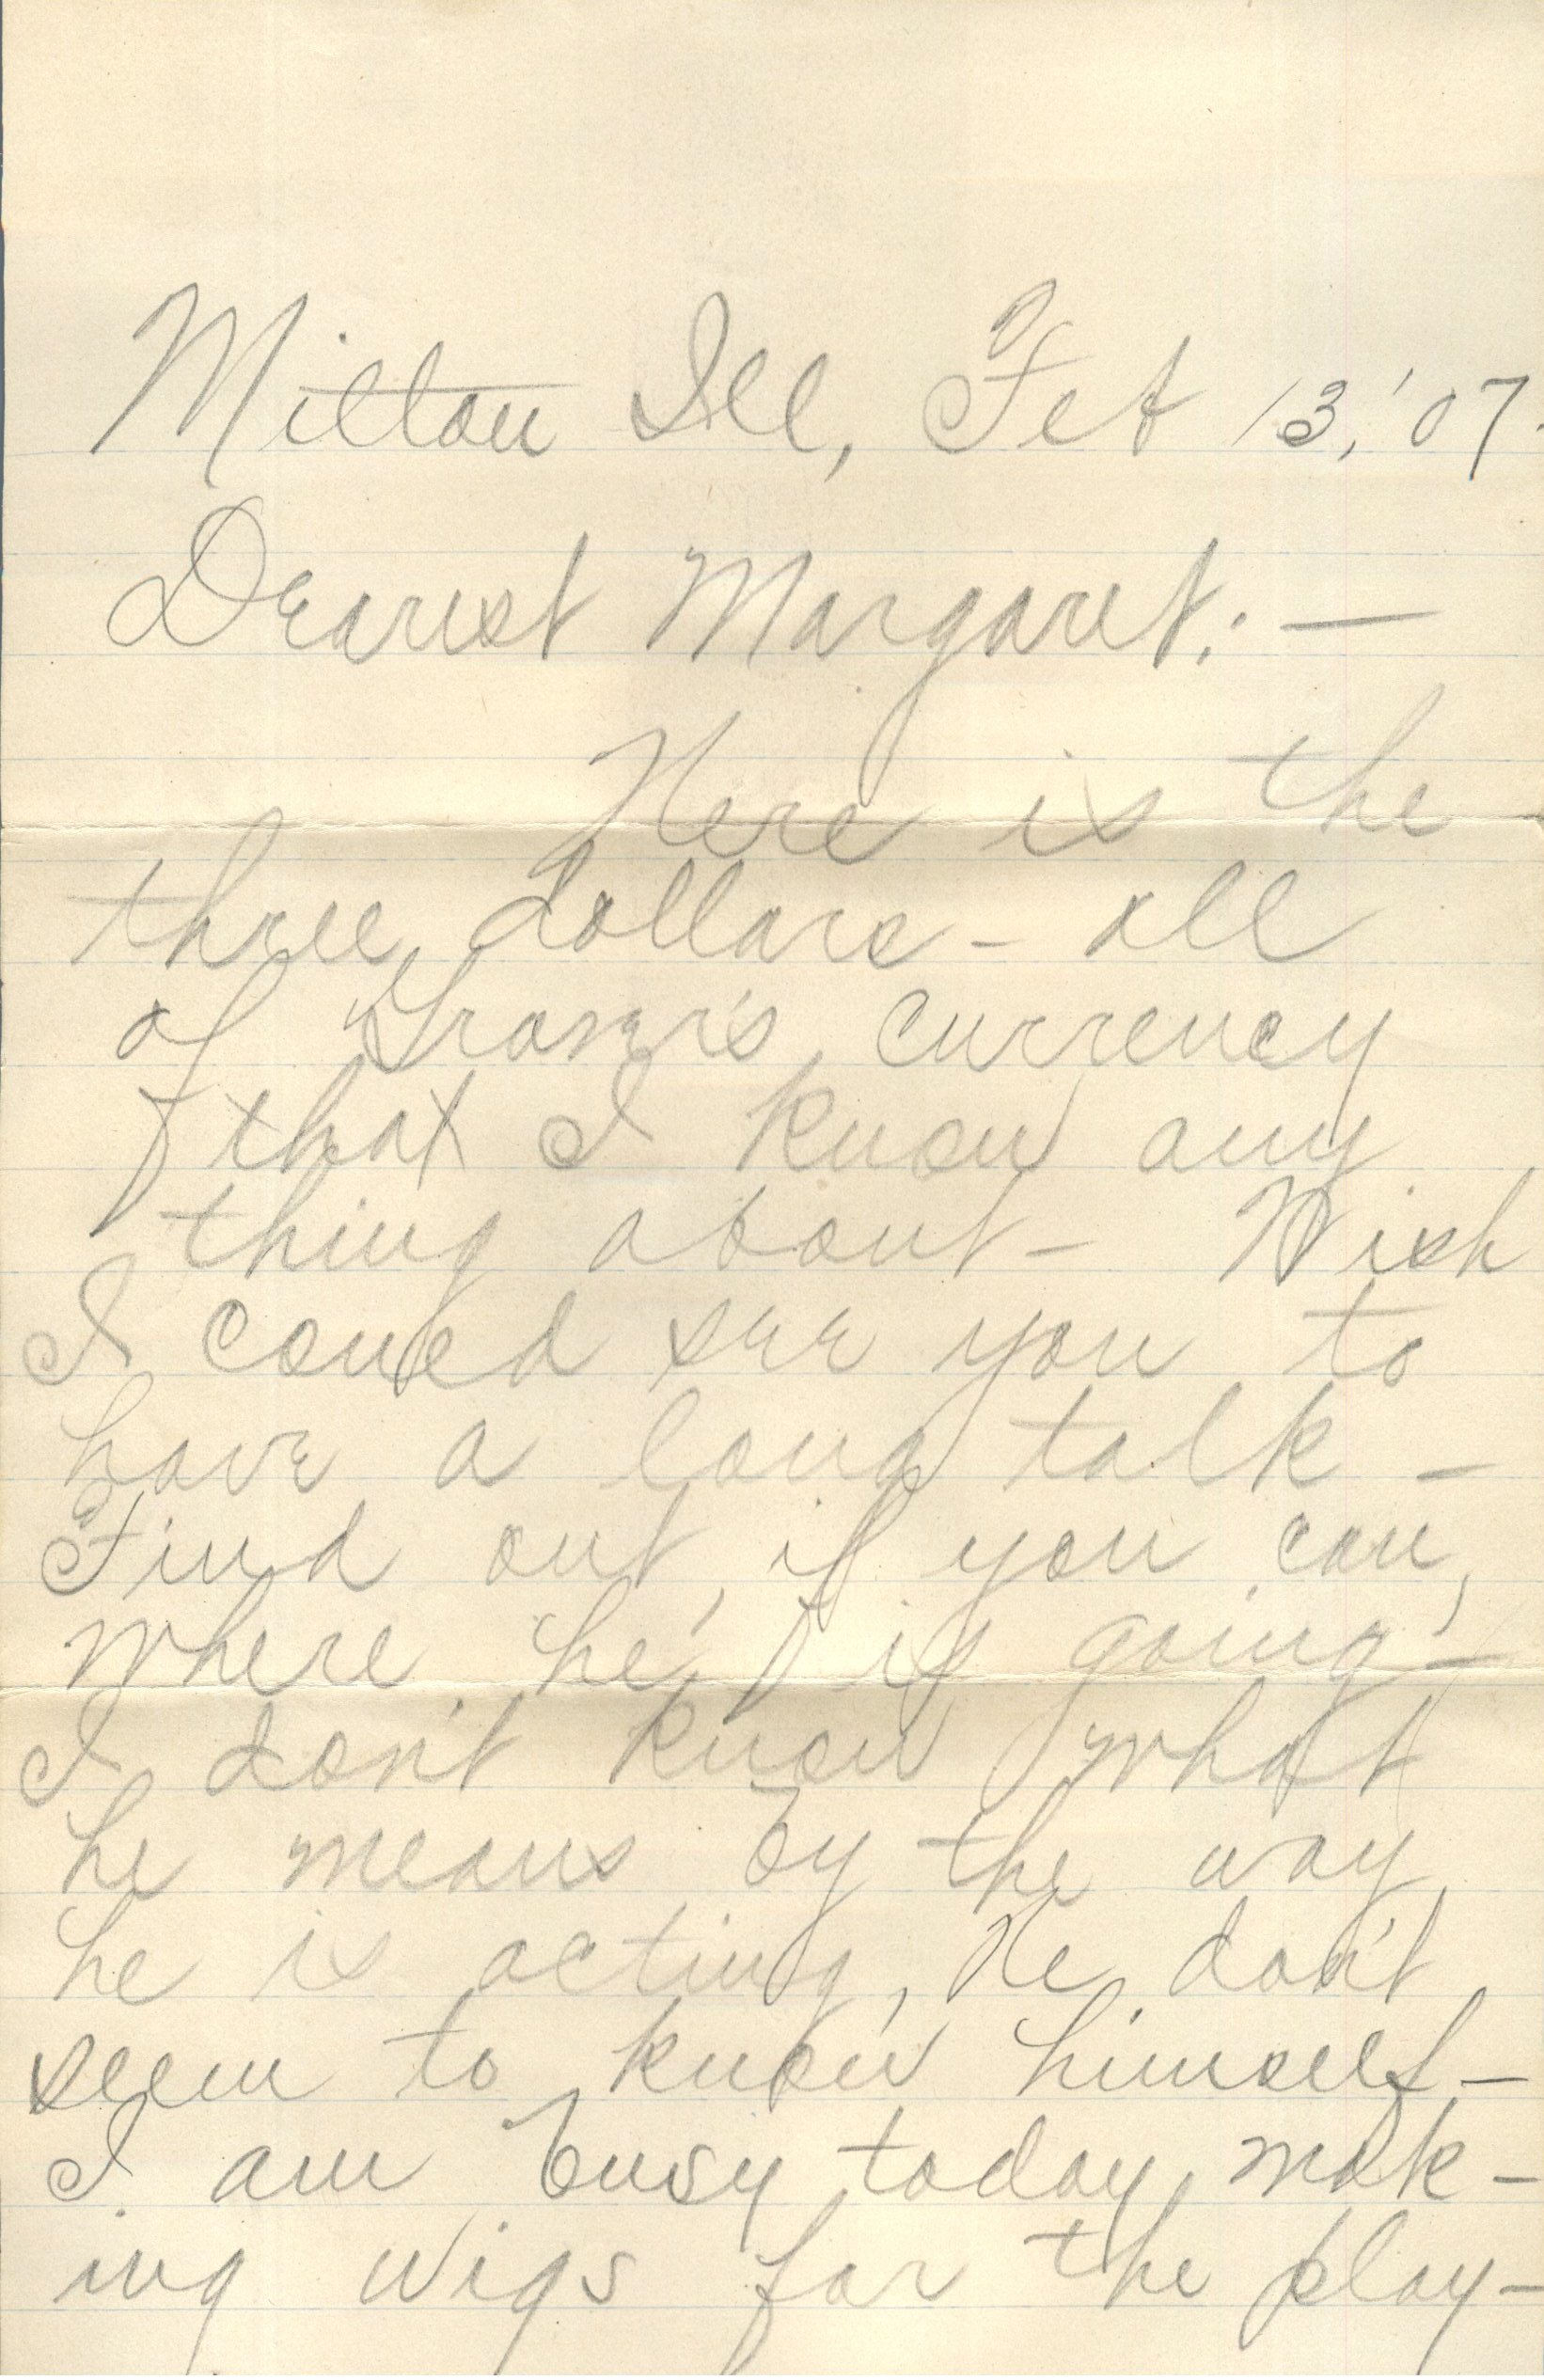 Milton Ill, Feb 13, '07.
Dearest Margaret: —
Here is the
three dollars - all
of currency
that I know any
thing about - Wish
I could see you to
have a long talk -
Find out, if you can,
where "he" is going -
I don't know what
he means by the way
he is acting, He don't
seem to know himself -
I am busy today, mak-
ing wigs for the play -